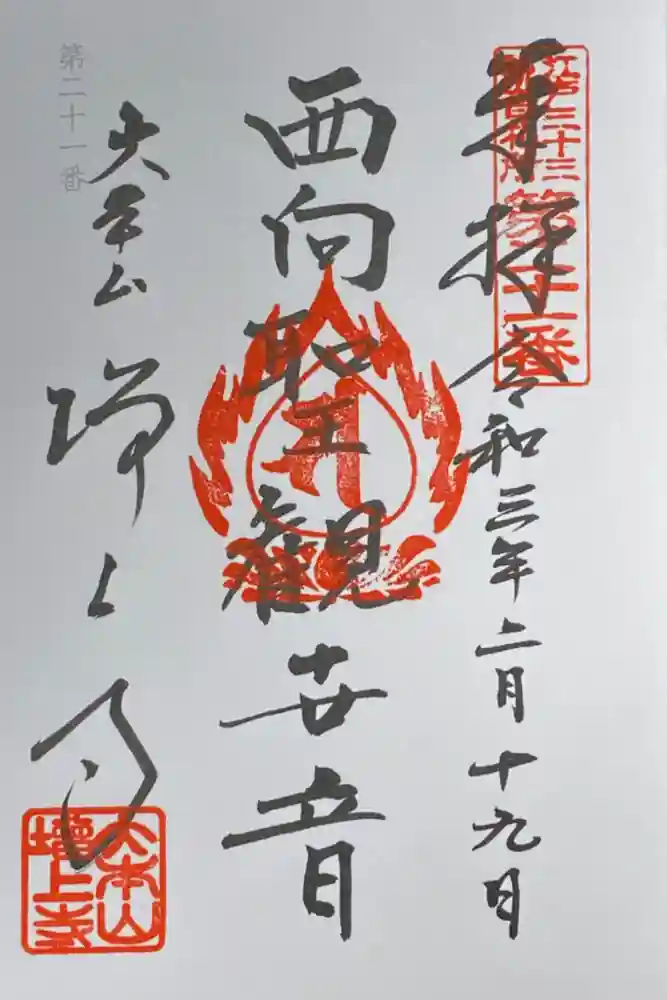 奉拝 令和三年二月十九日
江戸三十三観音札所 第二十一番
西向聖観世音
大本山 増上寺
大本山増上寺
第二十一番